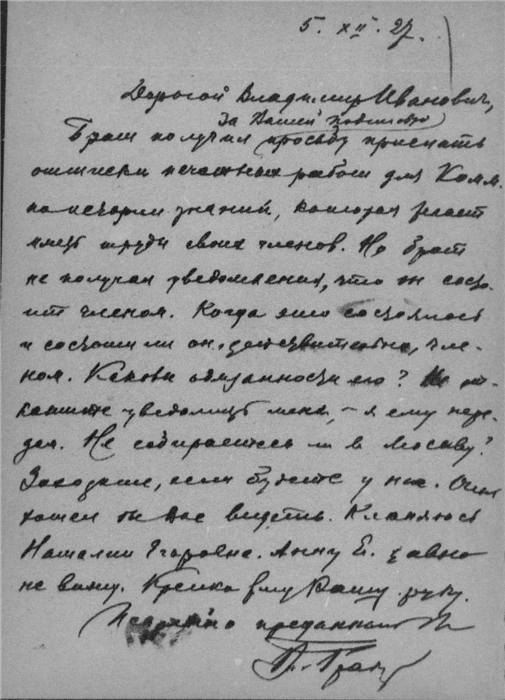 5. XII. 27.
Дорогой Владимир Иванович,
за Вашей подписью
Брат получил просьбу прислать
оттиски печатных работ для Комм.
по истории знаний, которая желает
иметь труды своих членов. Но брат
не получал уведомления, что он состо-
ит членом. Когда это состоялось
и состоит ли он, действительно, чле-
ном. Каковы обязанности его? Не от-
кажите уведомить меня, – я ему пере-
дам. Не собираетесь ли в Москву?
Заходите, если будете у нас. Очень
хотел бы Вас видеть. Кланяюсь
Наталии Егоровне. Анну Е. давно
не вижу. Крепко жму Вашу руку.
преданный